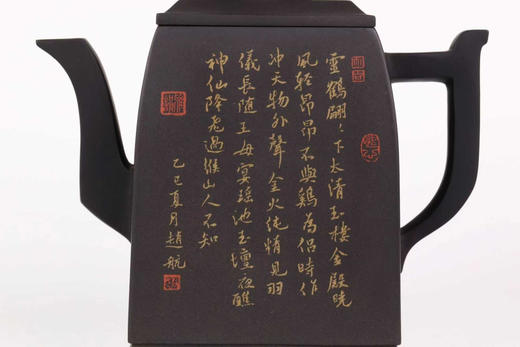 靈鶴翩〻下太清玉樓金殿曉
風輕昂昂不與鷄為侶時作
冲天物外聲金火純情見羽
儀長隨王母宴瑶池玉壇夜醮
神仙降飛過緱山人不知
乙巳夏月趙航